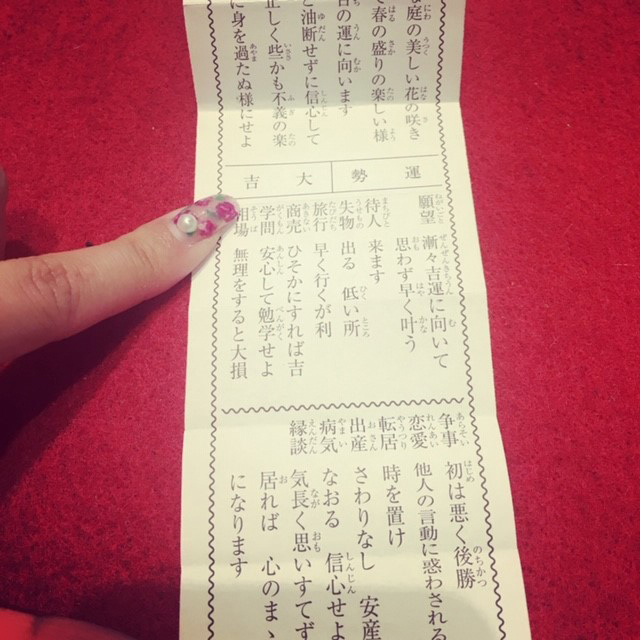 な庭の美しい花の咲き
て春の盛りの楽しい様
吉の運に向います
と油断せずに信心して
正しく些かも不義の楽
に身を過たぬ様にせよ
運勢 大吉
願望 漸々吉運に向いて
思わず早く叶う
待人 来ます
失物 出る 低い所
旅行 早く行くが利
商売 ひそかにすれば吉
学問 安心して勉学せよ
相場 無理をすると大損
争事 初は悪く後勝
恋愛 他人の言動に惑わされる
転居 時を置け
出産 さわりなし 安産
病気 なおる 信心せよ
縁談 気長く思いすてず
居れば 心のまゝ
になります